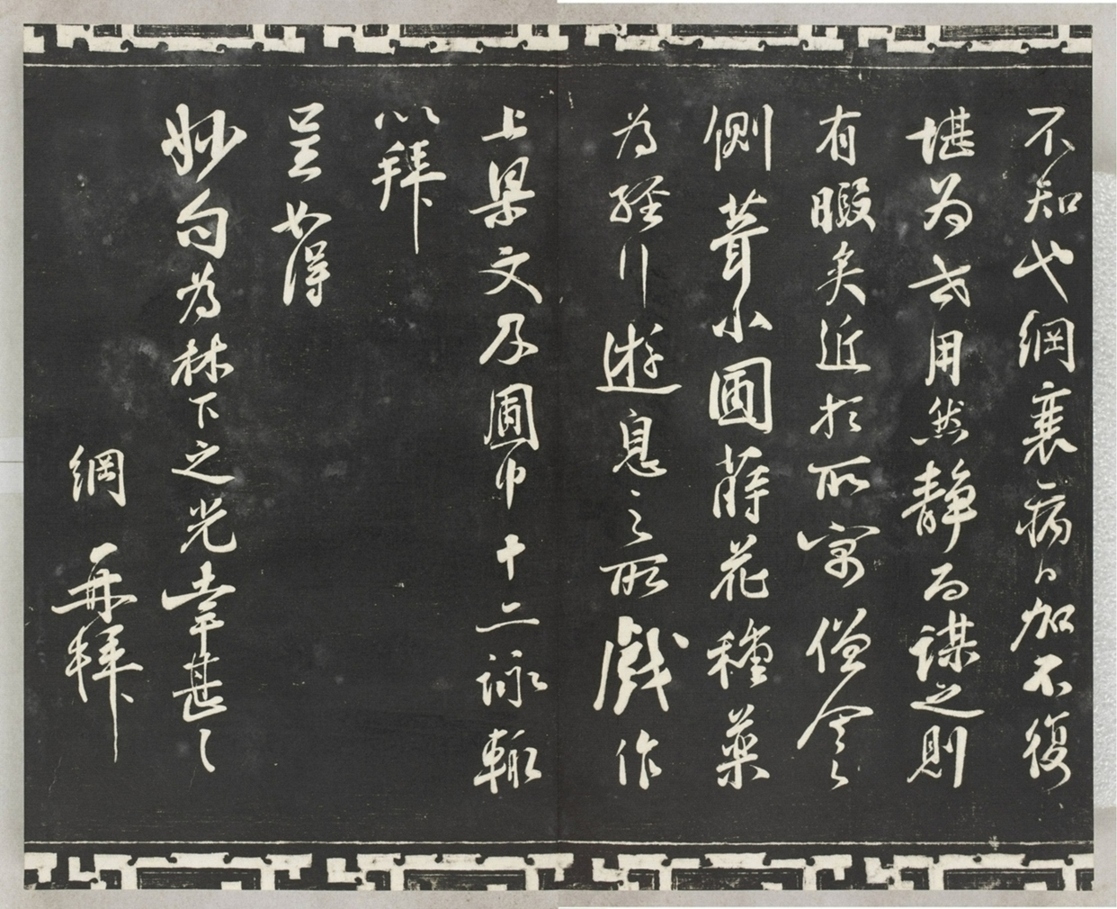 不知也綱衰病日加不復
堪為世用然静而謀之則
有暇矣近於所寓僧舍之
側葺小圃蒔花種藥
為經行遊息之所戲作
上梁文及圃中十二詠輒
以拜
呈如得
妙句為林下之光幸甚之
綱再拜